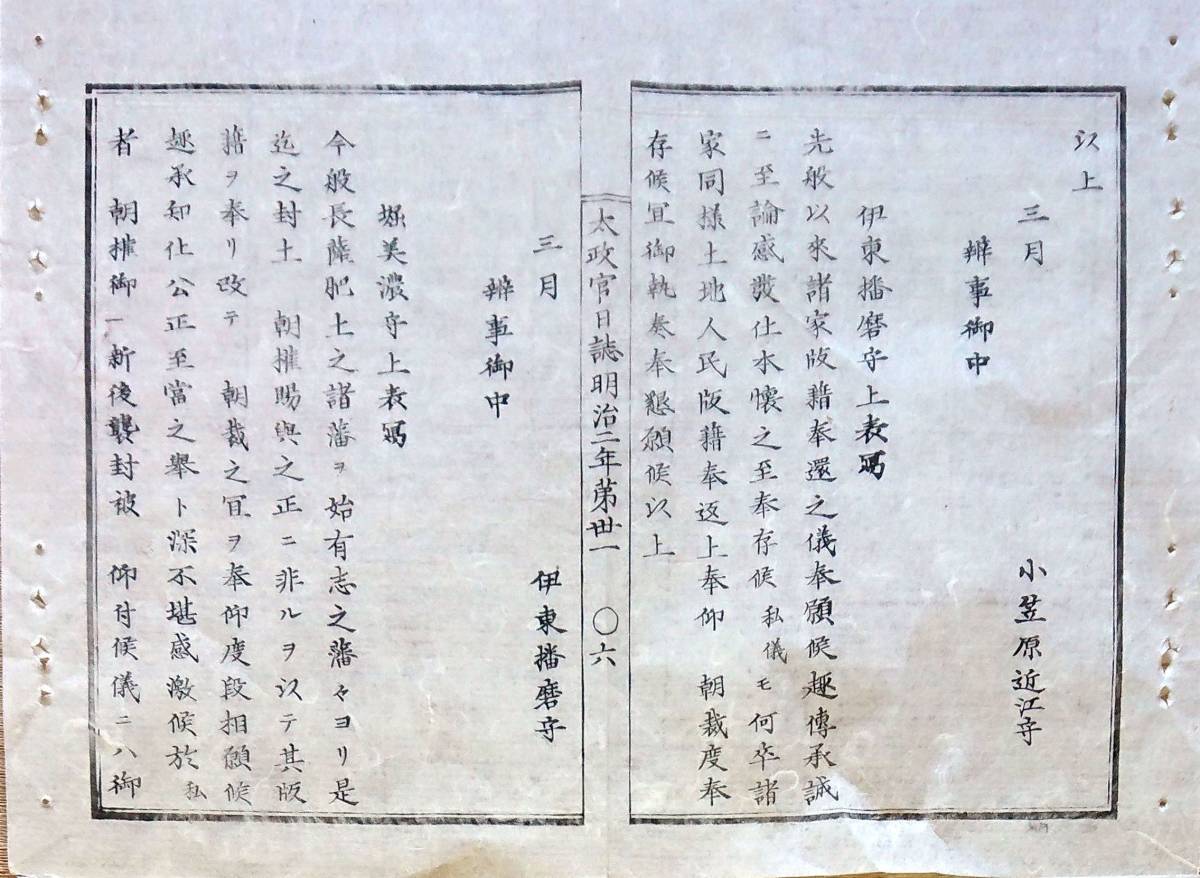 以上
三月　小笠原近江守
辨事御中
伊東播磨守上表寫
先般以來諸家版籍奉還之儀奉願候趣傳承誠
ニ至論感激仕本懷之至奉存候私儀モ何卒諸
家同樣土地人民版籍奉返上奉仰　朝裁度奉
存候宜御執奏奉懇願候以上
太政官日誌明治二年第卅一　〇六
三月　伊東播磨守
辨事御中
堀美濃守上表寫
今般長薩肥土之諸藩ヲ始有志之藩々ヨリ是
迄之封土　朝權賜與之正ニ非ルヲ以テ其版
籍ヲ奉リ改テ　朝裁之宜ヲ奉仰度段相願候
趣承知仕公正至當之擧ト深不堪感激候於私
者　朝權御一新後襲封被　仰付候儀ニハ御